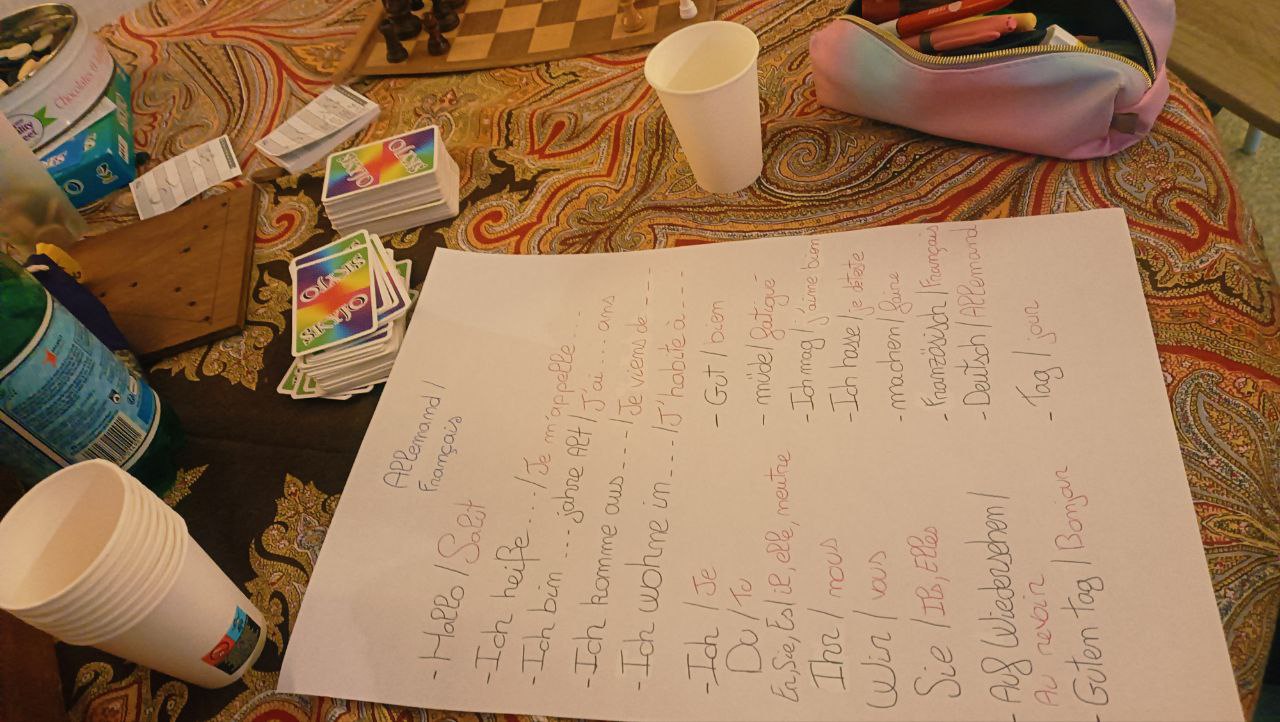 Allemand /
Français
- Hallo / Salut
- Ich heiße... / Je m'appelle...
- Ich bin ... jahre Alt / J'ai ... ans
- Ich komme aus --- / Je viens de ---
- Ich wohne in --- / J'habite à ---
- Ich / Je
Du / Tu
Er, Sie, Es / il, elle, neutre
Ihr / nous
Wir / vous
Sie / Ils, Elles
- Auf Wiedersehen /
Au revoir
Guten tag / Bonjour
- Gut / bien
- müde / fatigué
- Ich mag / j'aime bien
- Ich hasse / je déteste
- machen / faire
- Französisch / Français
- Deutsch / Allemand
- Tag / jour
SKYJO
SKYJO
SKYJO
SKYJO
Chocolates